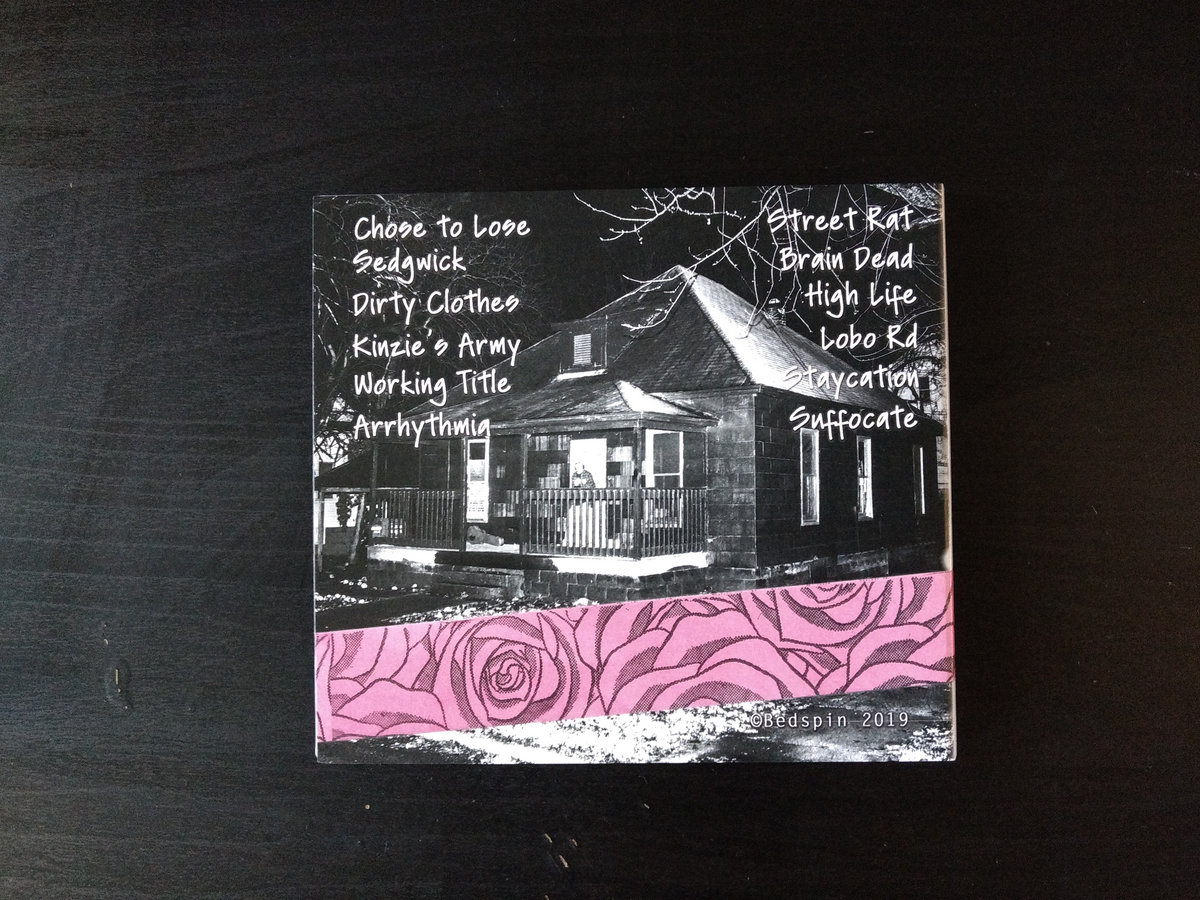 Chose to Lose
Sedgwick
Dirty Clothes
Kinzie's Army
Working Title
Arrhythmia
Street Rat
Brain Dead
High Life
Lobo Rd
Staycation
Suffocate
©Bedspin 2019